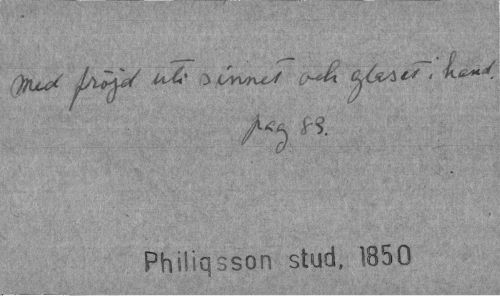 med fröjd uti sinnet och glaset i hand.
pag 83.
Philiqsson stud, 1850